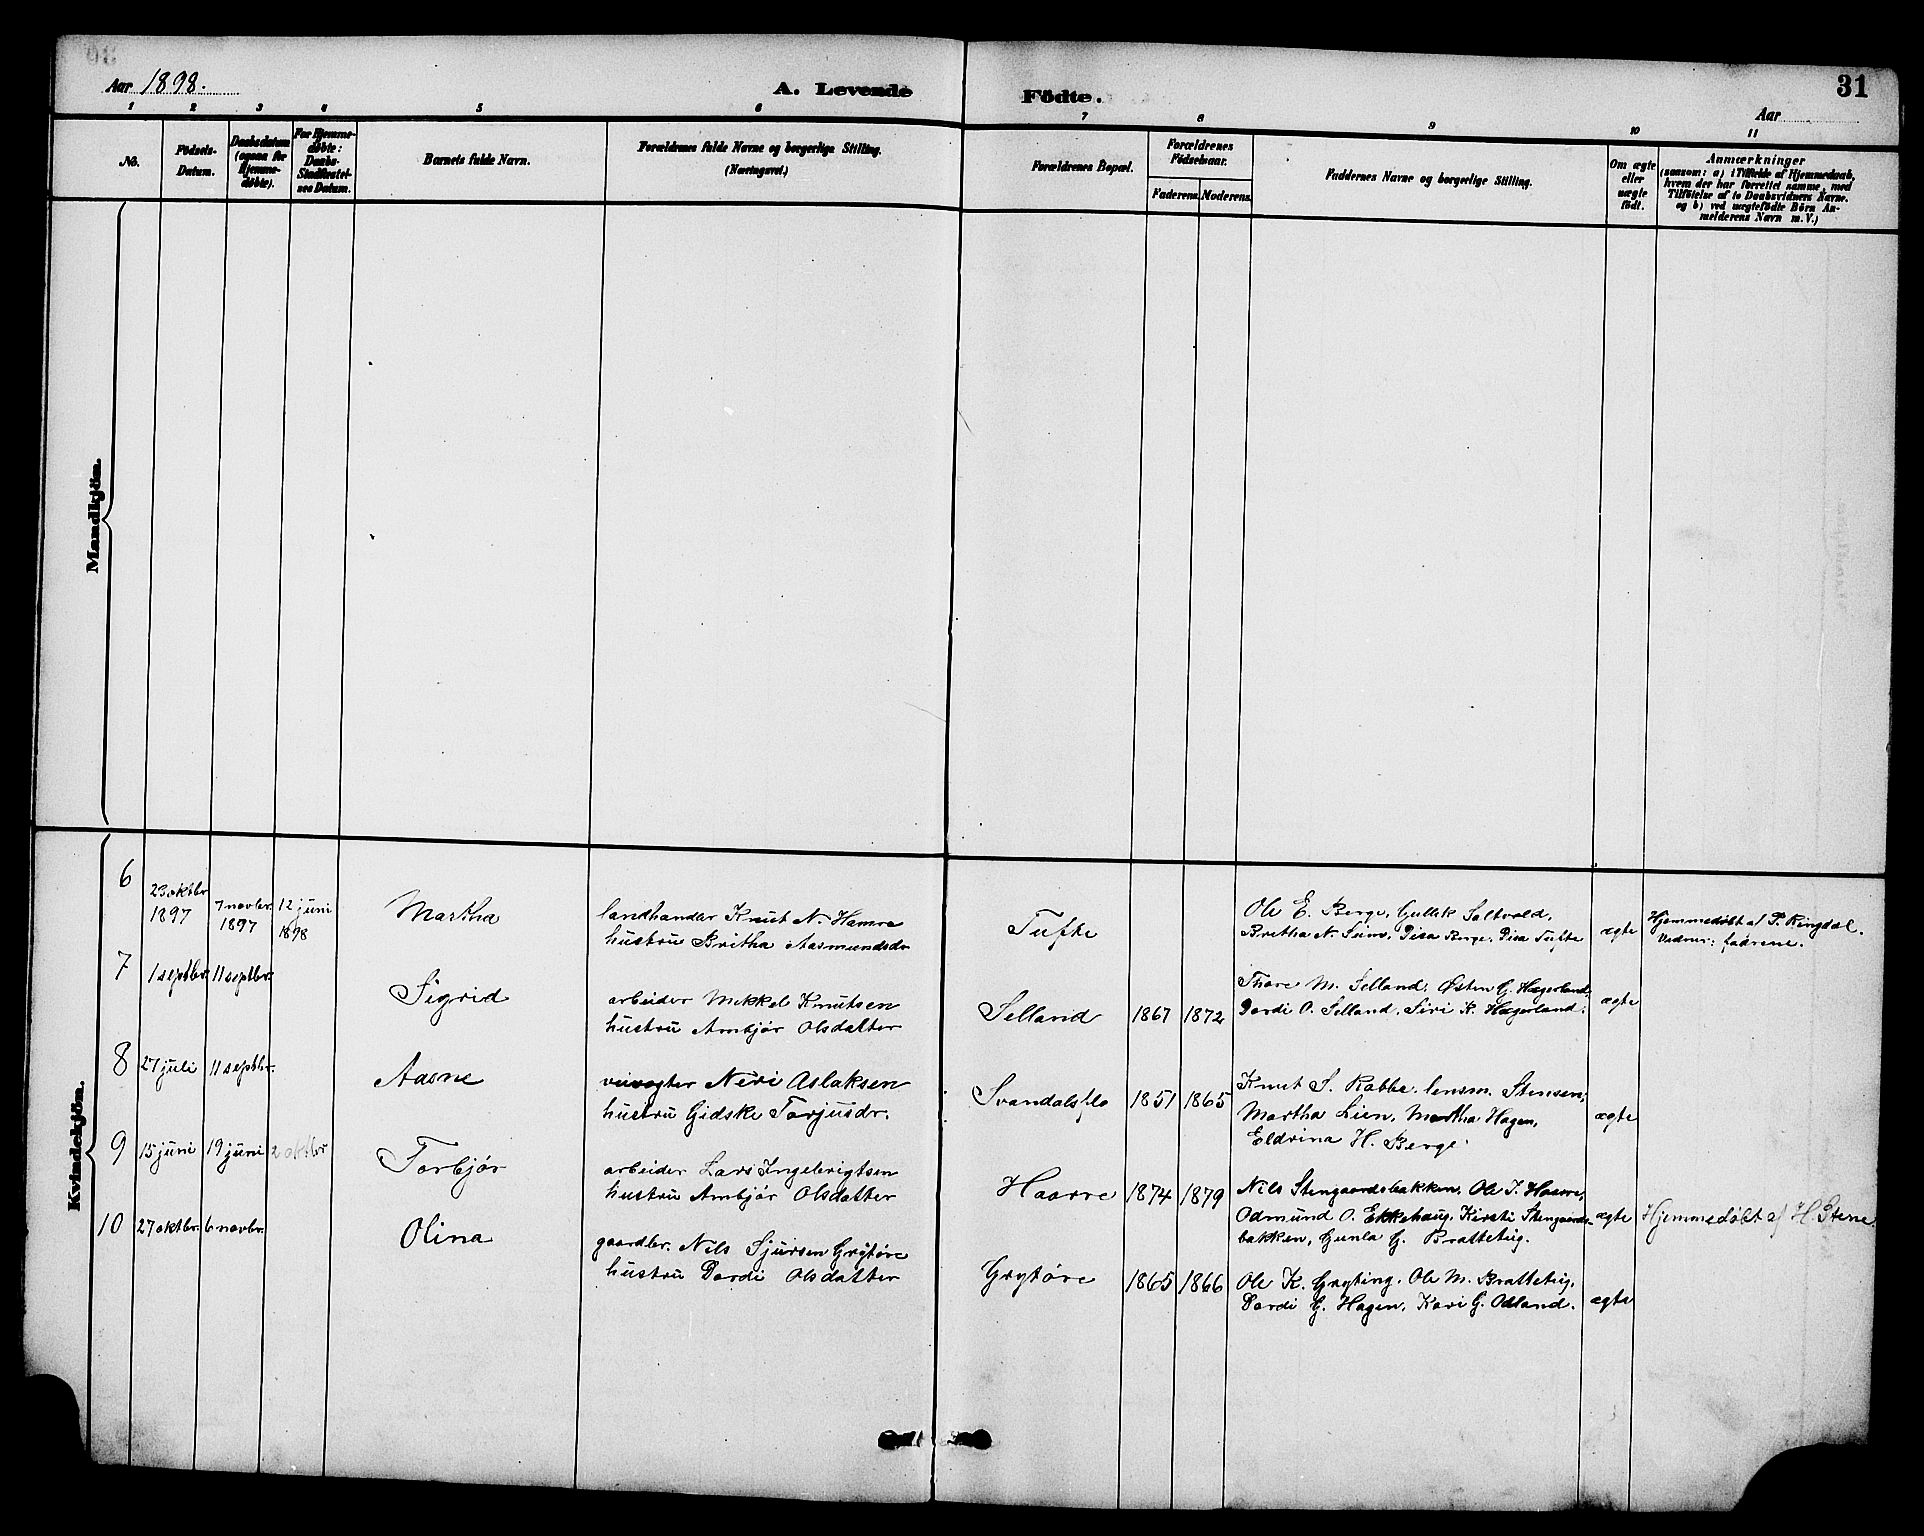 Aar 1898.
A. Levende Födte.
31
Aar
1 2 3 4 5 6 7 8 9 10 11
No.
Födsels-
Datum.
Daabsdatum
(ogsaa for
Hjemme-
døbte).
For Hjemme-
døbte:
Daabs-
Stadfæstel-
ses Datum.
Barnets fulde Navn.
Forældrenes fulde Navne og borgerlige Stilling.
(Næringsvei.)
Forældrenes Bopæl.
Forældrenes
Födselsaar.
Faderens. Moderens.
Faddernes Navne og borgerlige Stilling.
Om ægte
eller
uægte
födt.
Anmærkninger
(saasom: a) i Tilfælde af Hjemmedaab,
hvem der har forrettet samme, med
Tilföielse af to Daabsvidners Navne.
og b) ved uægtefödte Börn An-
melderens Navn m. V.)
Mandkjön.
Kvindekjön.
6
23 oktbr
1897
7 novbr.
1897
12 juni
1898
Martha
landhandler Knut N. Hamre
hustru Britha Aasmundsdr
Tufte
Ole E. Berge, Gullik Saltvold,
Bretha N. Seim, Pisa Berge, Pisa Tufte
ægte
Hjemmedøbt af P. Ringdal.
Vidner: fadrene.
7
1 septbr. 11 septbr.
Sigrid
arbeider Mikkel Knutsen
hustru Ambjør Olsdatter
Selland 1867 1872
Thore M. Selland, Østen G. Hægerland,
Dordi O. Selland, Siri K. Hægerland.
ægte
8
27 juli 11 septbr.
Aasne
veivogter Neri Aslaksen
hustru Gidske Torjusdr.
Svandalsflo 1851 1865
Knut S. Rabbe, lensm. Stensen,
Martha Lien, Martha Hagen,
Eldrina H. Berge
ægte
9
15 juni 19 juni 2 oktbr
Torbjør
arbeider Lars Ingebrigtsen
hustru Ambjør Olsdatter
Haarre 1874 1879
Nils Stengaardsbakken, Ole T. Haarre,
Odmund O. Ekkehaug, Kirsti Stengaards-
bakken, Gunla G. Bratteteig.
ægte
Hjemmedøbt af H. Stene.
10
27 oktbr. 6 novbr.
Olina
gaardbr. Nils Sjursen Grytøre
hustru Dordi Olsdatter
Grytøre 1865 1866
Ole K. Gryting, Ole M. Bratteteig,
Dordi G. Hagen, Kari G. Odland.
ægte